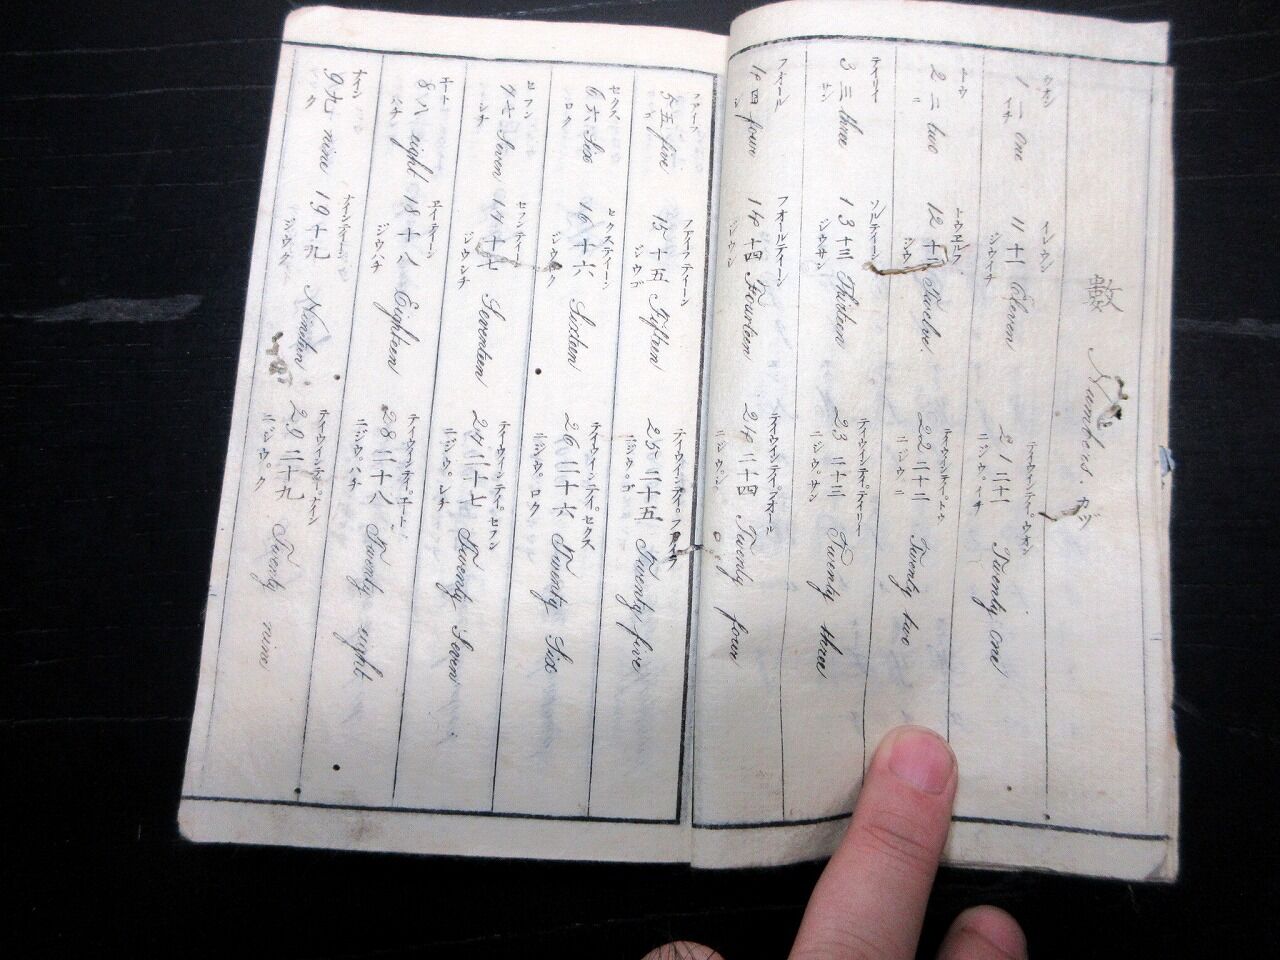 數 Numbers. カヅ
ウオン
1 一 one
イチ
イレウン
11 十一 Eleven
ジウイチ
ティウインティ゜ウオン
21 二十一 Twenty one
ニジウ゜イチ
トウ
2 二 two
ニ
トウエルフ
12 十二 Twelve
ジウニ
22 二十二 Twenty two
ニジウニ
テイリイ
3 三 three
サン
ソルティーン
13 十三 Thirteen
ジウサン
ティウインティ゜ティリー
23 二十三 Twenty three
ニジウ゜サン
フオール
4 四 four
シ
フオールティーン
14 十四 Fourteen
ジウシ
ティウインティ゜フオール
24 二十四 Twenty four
ニジウ゜シ
ファイフ
5 五 five
ゴ
ファイフティーン
15 十五 Fifteen
ジウゴ
ティウインティ゜ファイフ
25 二十五 Twenty five
ニジウ゜ゴ
セクス
6 六 Six
ロク
セクスティーン
16 十六 Sixteen
ジウロク
ティウインティ゜セクス
26 二十六 Twenty Six
ニジウ゜ロク
セフン
7 七 Seven
シチ
セフンティーン
17 十七 Seventeen
ジウシチ
ティウインティ゜セフン
27 二十七 Twenty Seven
ニジウ゜シチ
エート
8 八 eight
ハチ
エイテーン
18 十八 Eighteen
ジウハチ
ティウインティ゜エート
28 二十八 Twenty eight
ニジウ゜ハチ
ナイン
9 九 nine
ク
ナインテーン
19 十九 Nineteen
ジウク
ティウインティ゜ナイン
29 二十九 Twenty nine
ニジウ゜ク